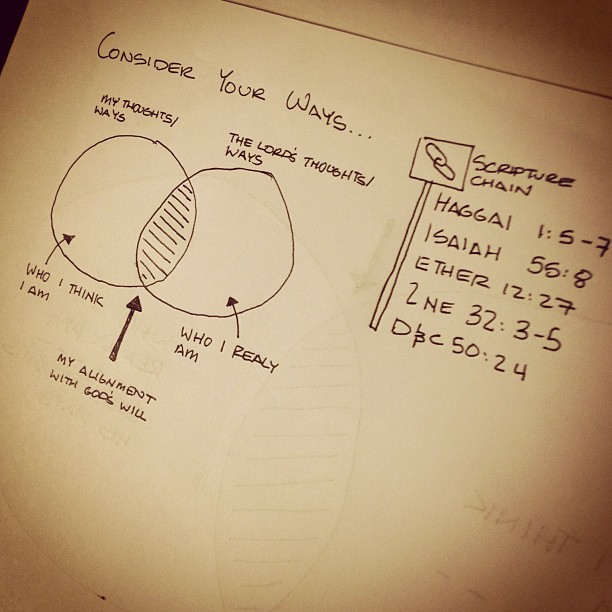 CONSIDER YOUR WAYS...
MY THOUGHTS/
WAYS
THE LORD'S THOUGHTS/
WAYS
WHO I THINK
I AM
WHO I REALY
AM
MY ALIGNMENT
WITH GOD'S WILL
SCRIPTURE
CHAIN
HAGGAI 1:5-7
ISAIAH 55:8
ETHER 12:27
2 NE 32:3-5
D&C 50:24
THINK